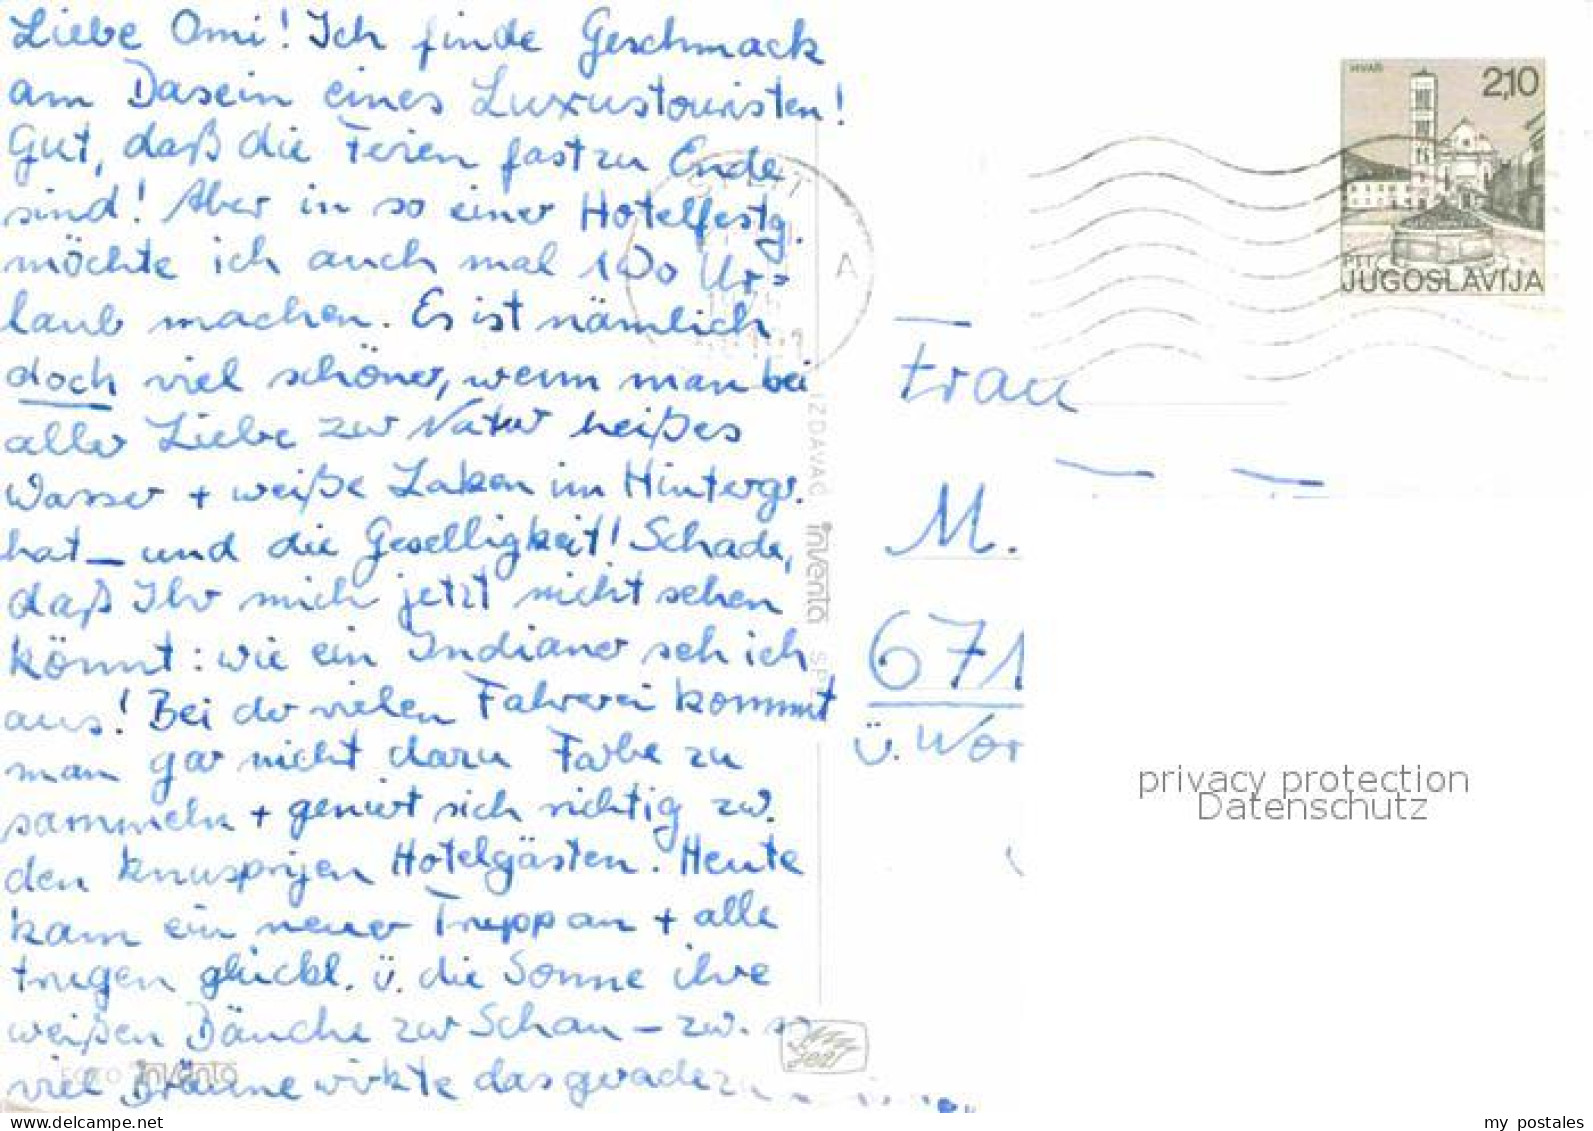 Liebe Omi! Ich finde Geschmack
am Dasein eines Luxustouristen!
Gut, daß die Ferien fast zu Ende
sind! Aber in so einer Hotelfestg.
möchte ich auch mal 1 Wo Ur=
laub machen. Es ist nämlich
doch viel schöner, wenn man bei
aller Liebe zur Natur heißes
Wasser + weiße Laken im Hintergr.
hat – und die Geselligkeit! Schade,
daß Ihr mich jetzt nicht sehen
könnt: wie ein Indianer seh ich
aus! Bei der vielen Fahrerei kommt
man gar nicht dazu Farbe zu
sammeln + geniert sich richtig zw.
den knusprigen Hotelgästen. Heute
kam ein neuer Trupp an + alle
trugen glückl. ü. die Sonne ihre
weißen Bäuche zur Schau – zw. so
viel Bräune wirkte das gerade
FOTO inventa
IZDAVAČ inventa SP
SPLIT
A
HVAR
2,10
PTT
JUGOSLAVIJA
Frau
M.
671
ü. Wor
privacy protection
Datenschutz
www.delcampe.net
my_postales